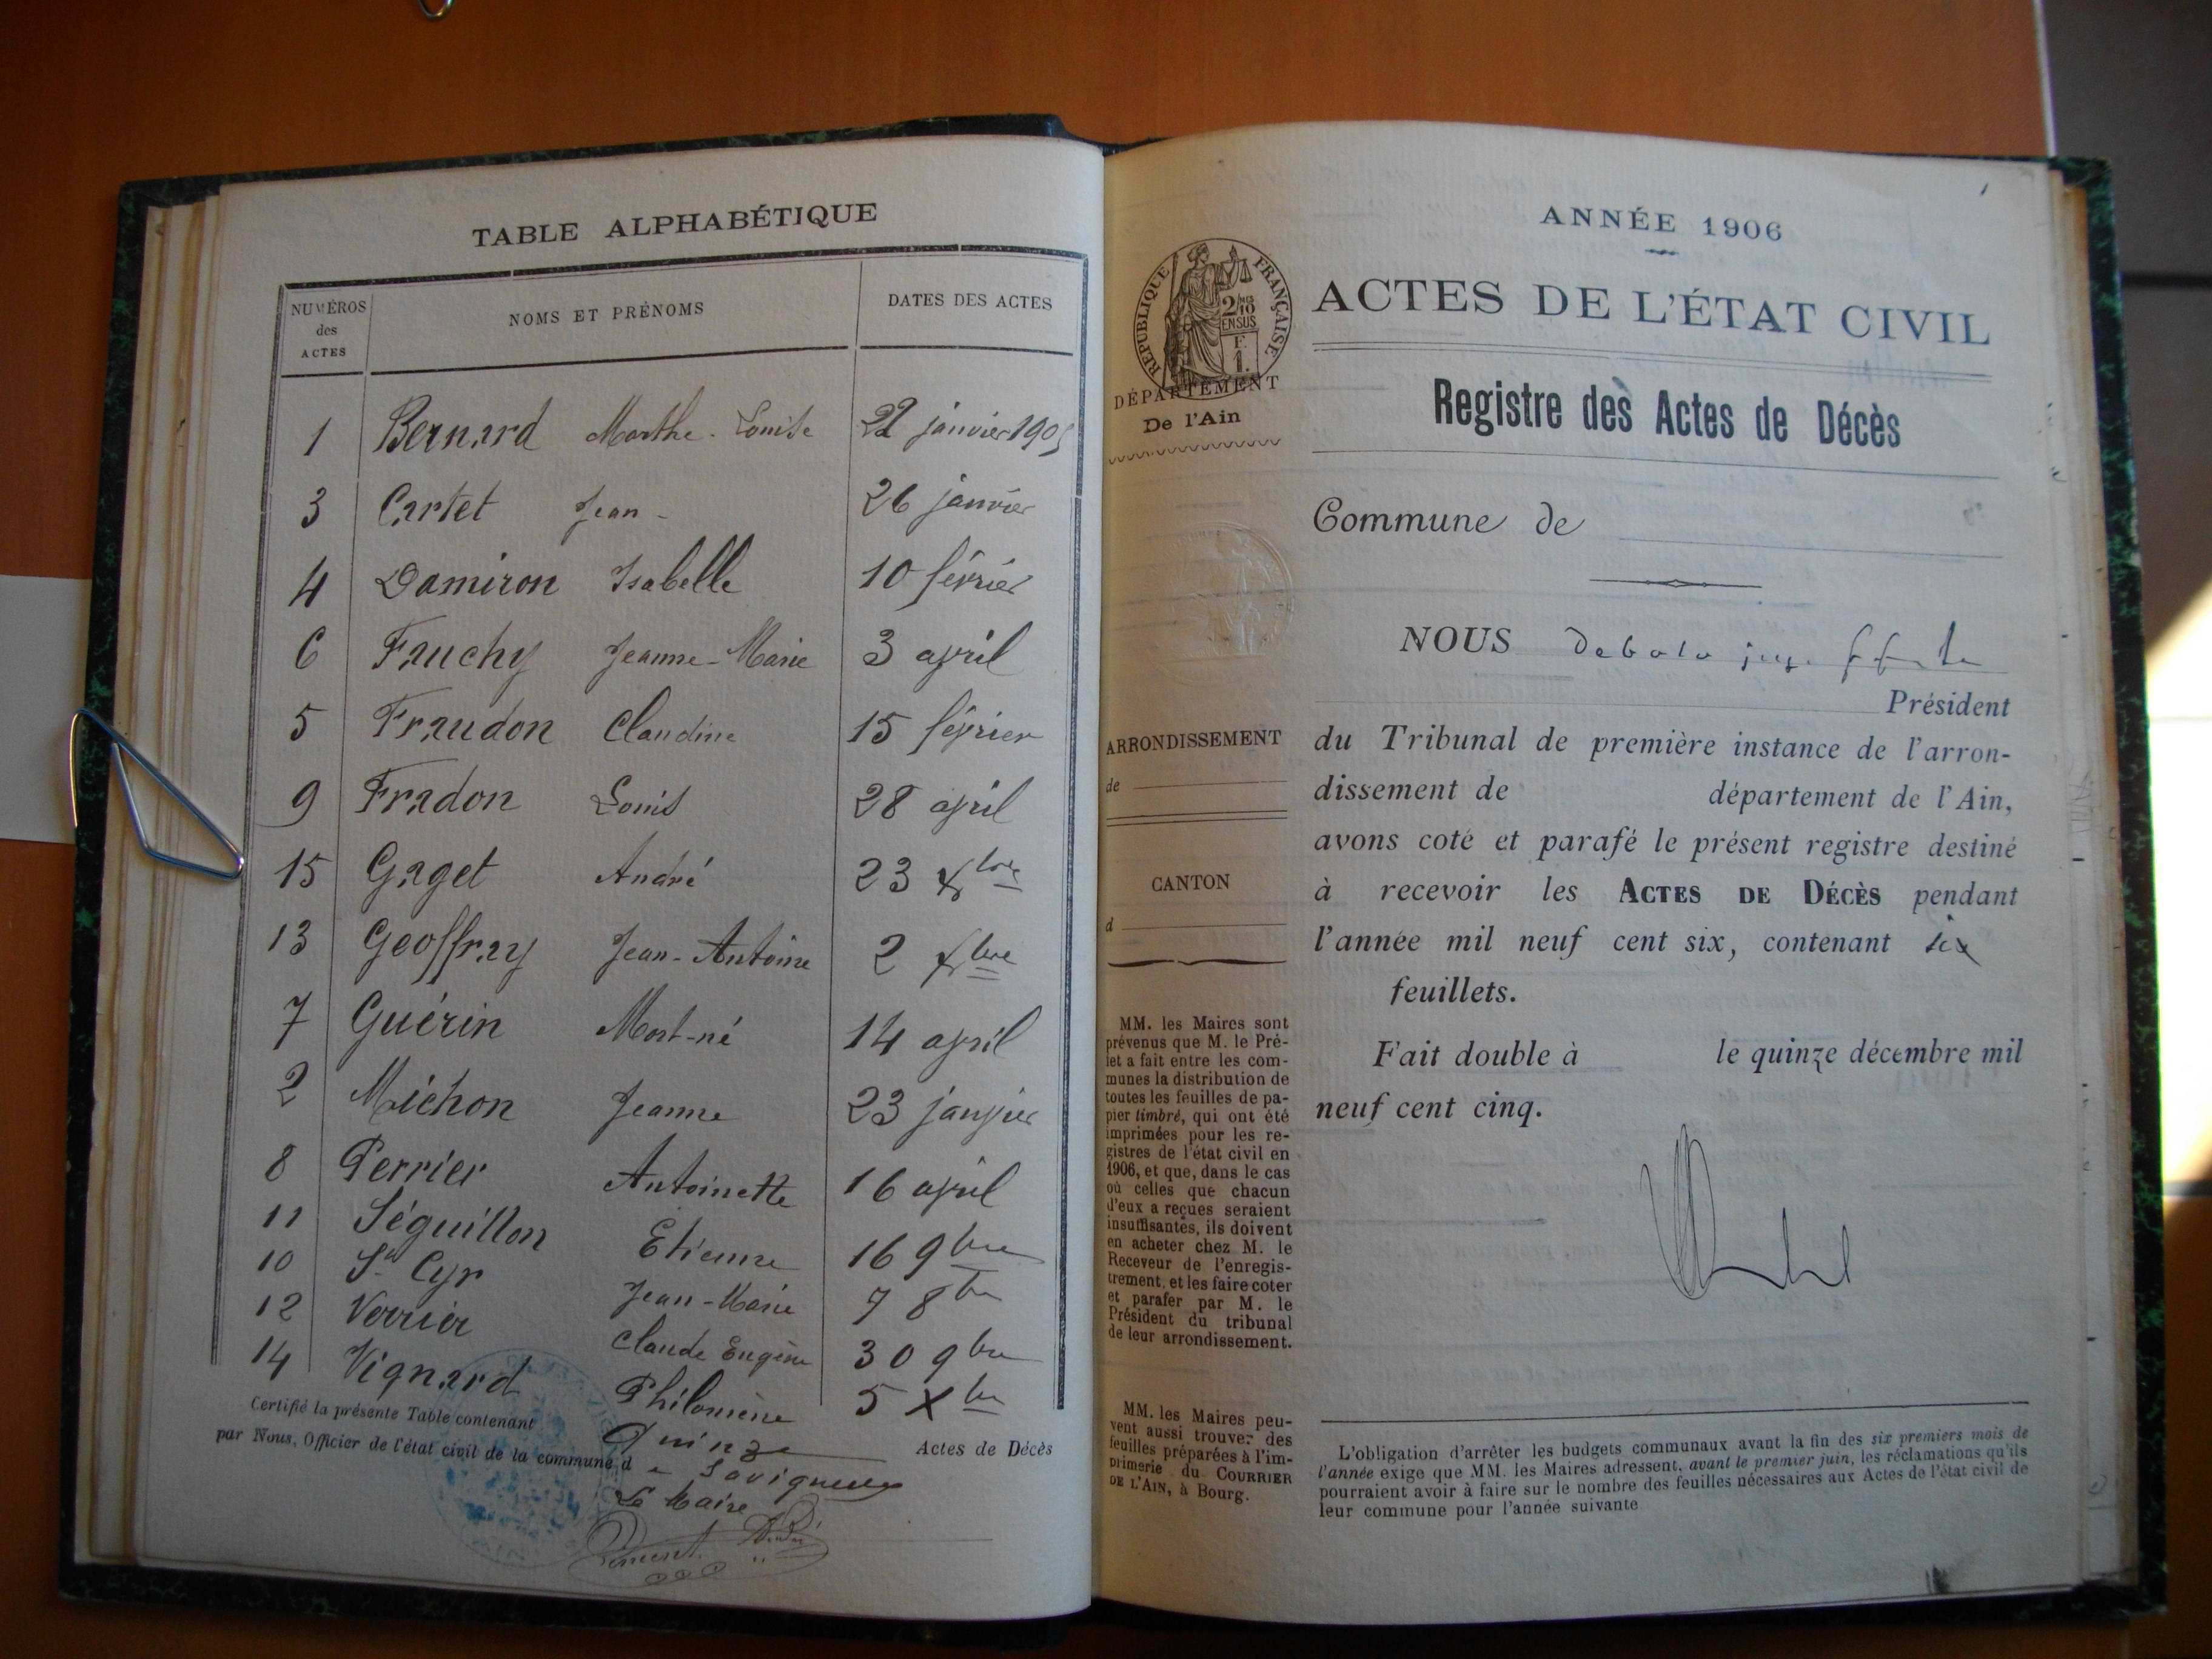 TABLE ALPHABÉTIQUE
NUMÉROS des ACTES NOMS ET PRÉNOMS DATES DES ACTES
1 Bernard Marthe-Louise 22 janvier 1905
3 Cartet Jean - 26 janvier
4 Damiron Isabelle 10 février
6 Fauchy Jeanne-Marie 3 avril
5 Fraudon Claudine 15 février
9 Fradon Louis 28 avril
15 Gaget André 23 Xbre
13 Geoffray Jean-Antoine 2 Xbre
7 Guérin Mort-né 14 avril
2 Michon Jeanne 23 janvier
8 Perrier Antoinette 16 avril
11 Séguillon Etienne 16 9bre
10 St Cyr Jean-Marie 7 8bre
12 Verrier Claude Eugène 30 9bre
14 Vignard Philomène 5 Xbre
Certifié la présente Table contenant Quinze Actes de Décès
par Nous, Officier de l'état civil de la commune d e Savigneux
Le Maire
ANNÉE 1906
RÉPUBLIQUE FRANÇAISE
2/10 EN SUS
F. 1.
DÉPARTEMENT
De l'Ain
ACTES DE L'ÉTAT CIVIL
Registre des Actes de Décès
Commune de
NOUS
Président
ARRONDISSEMENT
de
CANTON
d
du Tribunal de première instance de l'arron-
dissement de département de l'Ain,
avons coté et parafé le présent registre destiné
à recevoir les ACTES DE DÉCÈS pendant
l'année mil neuf cent six, contenant six
feuillets.
Fait double à le quinze décembre mil
neuf cent cinq.
MM. les Maires sont
prévenus que M. le Pré-
fet a fait entre les com-
munes la distribution de
toutes les feuilles de pa-
pier timbré, qui ont été
imprimées pour les re-
gistres de l'état civil en
1906, et que, dans le cas
où celles que chacun
d'eux a reçues seraient
insuffisantes, ils doivent
en acheter chez M. le
Receveur de l'enregis-
trement, et les faire coter
et parafer par M. le
Président du tribunal
de leur arrondissement.
MM. les Maires peu-
vent aussi trouver des
feuilles préparées à l'im-
primerie du COURRIER
DE L'AIN, à Bourg.
L'obligation d'arrêter les budgets communaux avant la fin des six premiers mois de
l'année exige que MM. les Maires adressent, avant le premier juin, les réclamations qu'ils
pourraient avoir à faire sur le nombre des feuilles nécessaires aux Actes de l'état civil de
leur commune pour l'année suivante